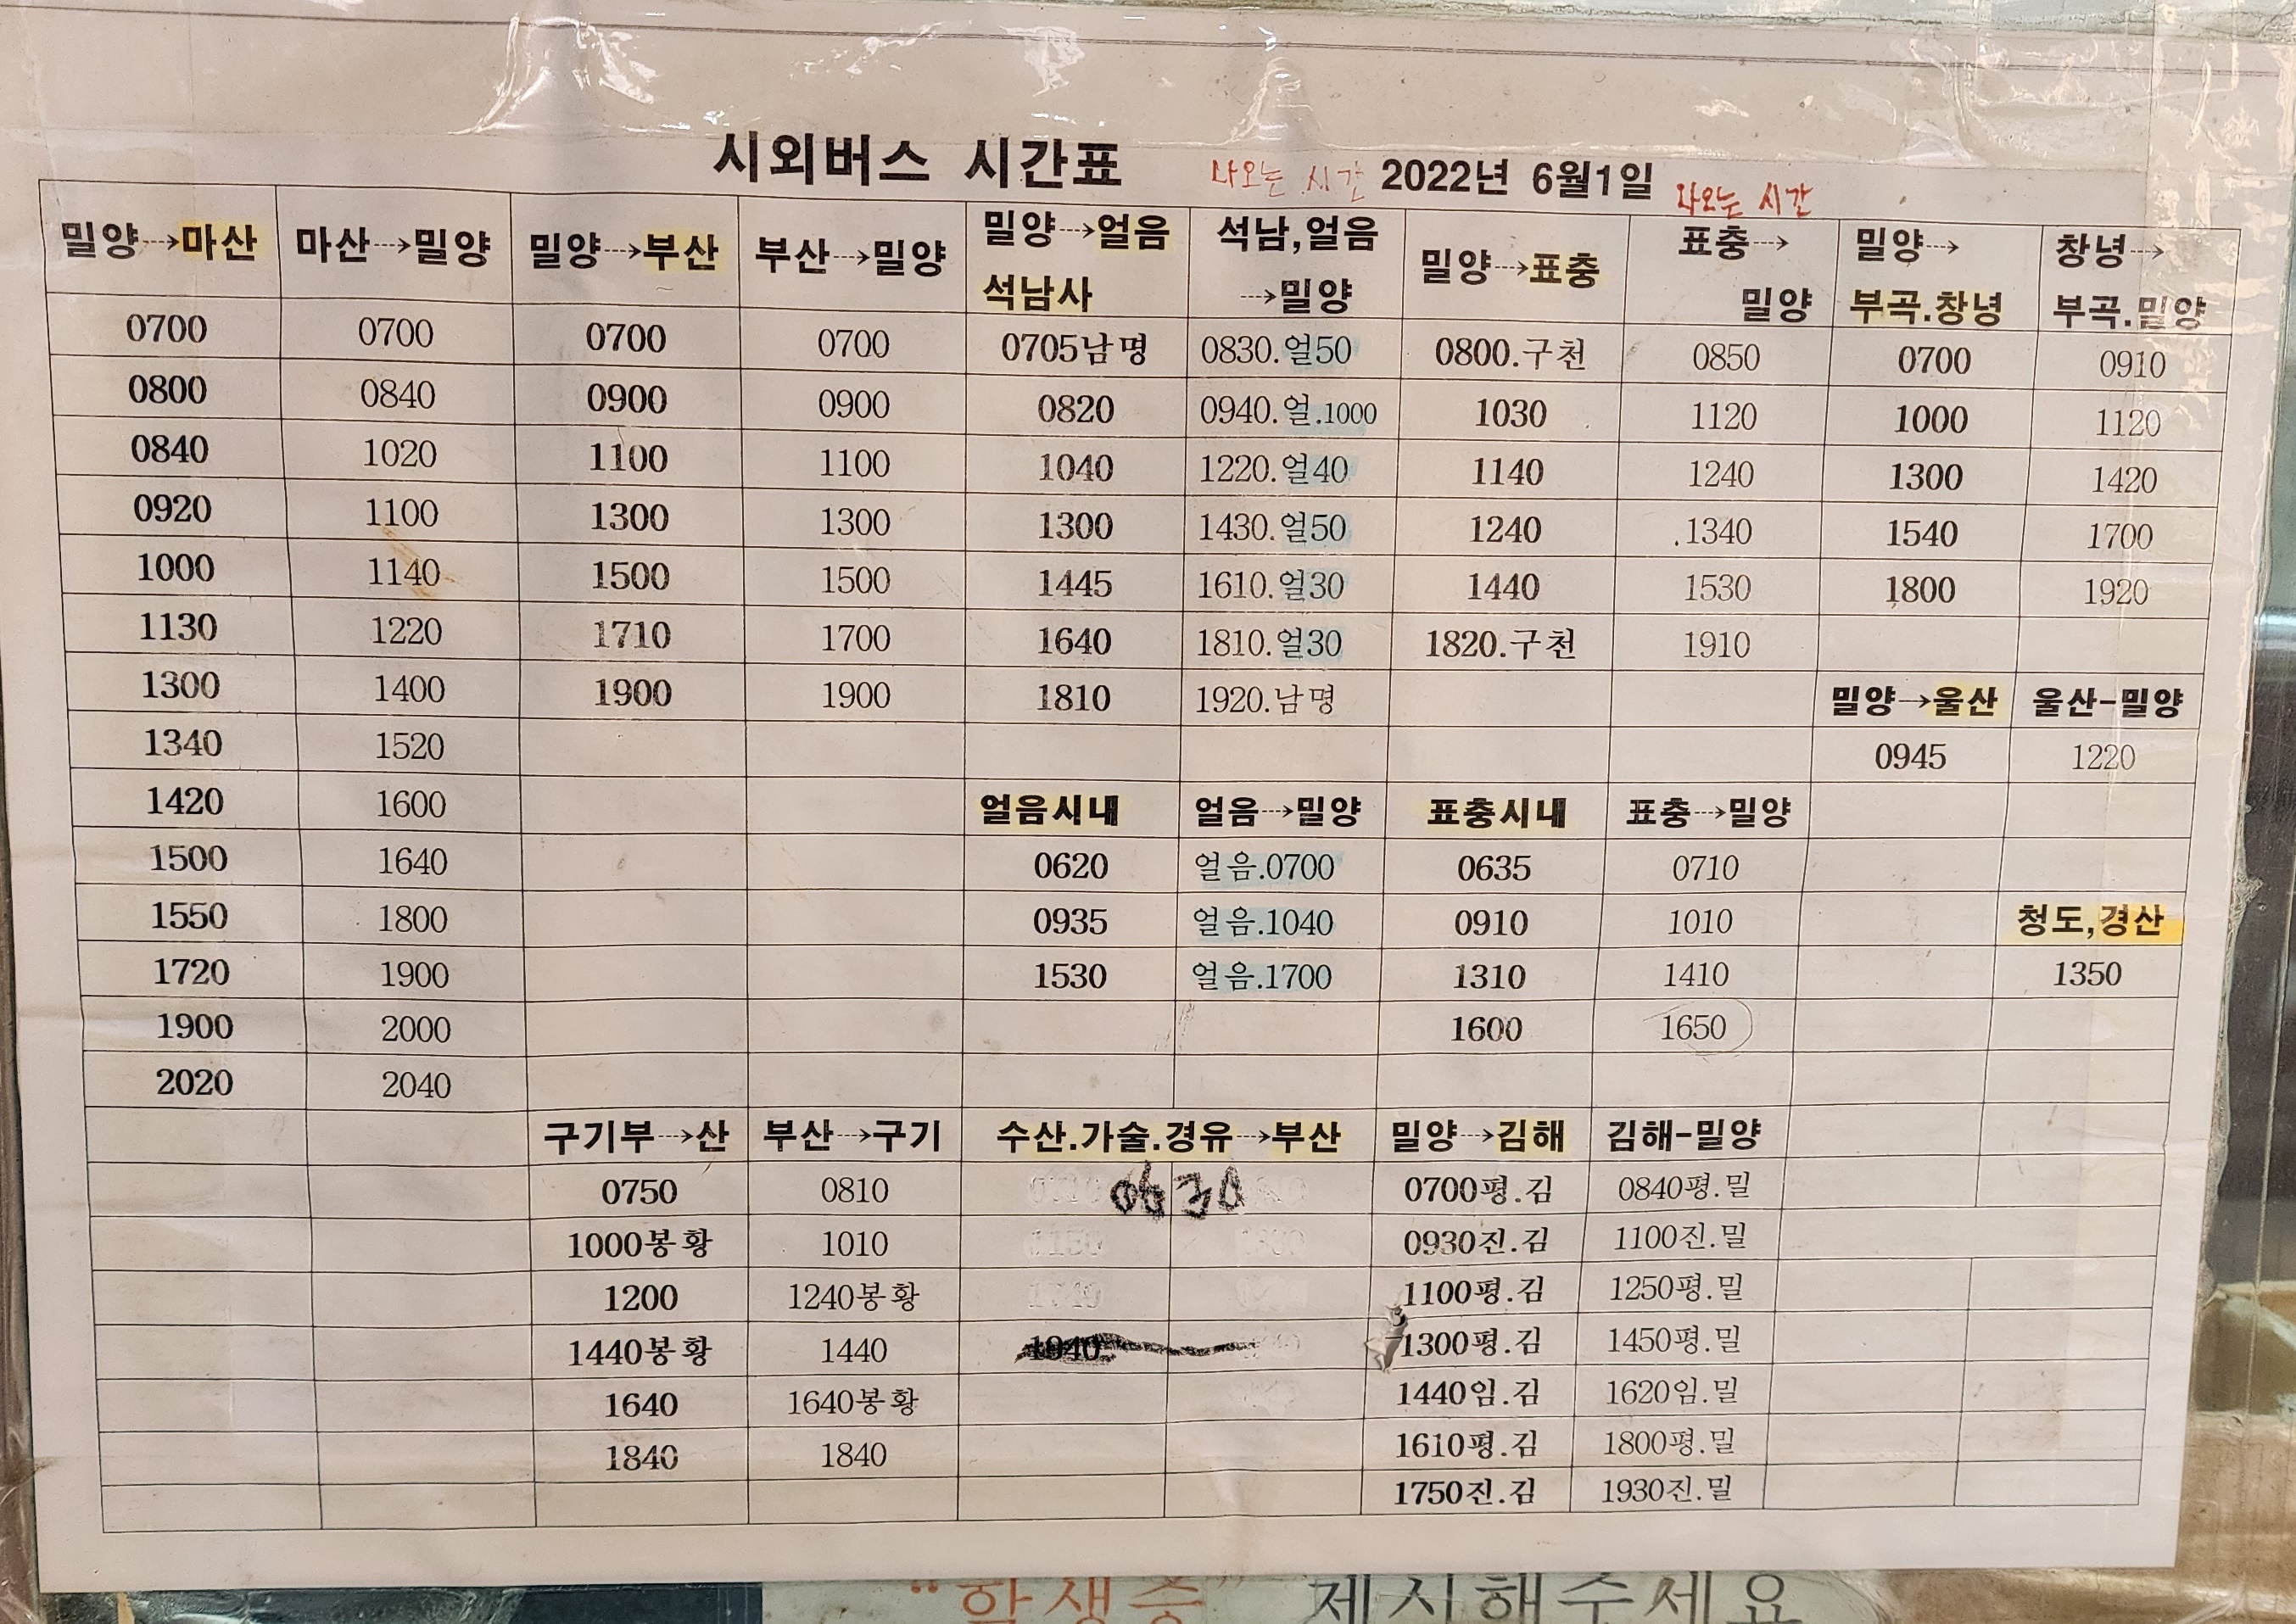 시외버스 시간표 나오는 시간 2022년 6월1일 나오는 시간
밀양→마산 마산→밀양 밀양→부산 부산→밀양 밀양→얼음 석남사 석남,얼음 →밀양 밀양→표충 표충→ 밀양 밀양→ 부곡.창녕 창녕→ 부곡.밀양
0700 0700 0700 0700 0705남명 0830.얼50 0800.구천 0850 0700 0910
0800 0840 0900 0900 0820 0940.얼.1000 1030 1120 1000 1120
0840 1020 1100 1100 1040 1220.얼40 1140 1240 1300 1420
0920 1100 1300 1300 1300 1430.얼50 1240 .1340 1540 1700
1000 1140 1500 1500 1445 1610.얼30 1440 1530 1800 1920
1130 1220 1710 1700 1640 1810.얼30 1820.구천 1910
1300 1400 1900 1900 1810 1920.남명 밀양→울산 울산-밀양
1340 1520 0945 1220
1420 1600 얼음시내 얼음→밀양 표충시내 표충→밀양
1500 1640 0620 얼음.0700 0635 0710
1550 1800 0935 얼음.1040 0910 1010 청도,경산
1720 1900 1530 얼음.1700 1310 1410 1350
1900 2000 1600 1650
2020 2040
구기부→산 부산→구기 수산.가술.경유→부산 밀양→김해 김해-밀양
0750 0810 0630 0700평.김 0840평.밀
1000봉황 1010 0930진.김 1100진.밀
1200 1240봉황 1100평.김 1250평.밀
1440봉황 1440 1300평.김 1450평.밀
1640 1640봉황 1440임.김 1620임.밀
1840 1840 1610평.김 1800평.밀
1750진.김 1930진.밀
"학생증" 제시해주세요